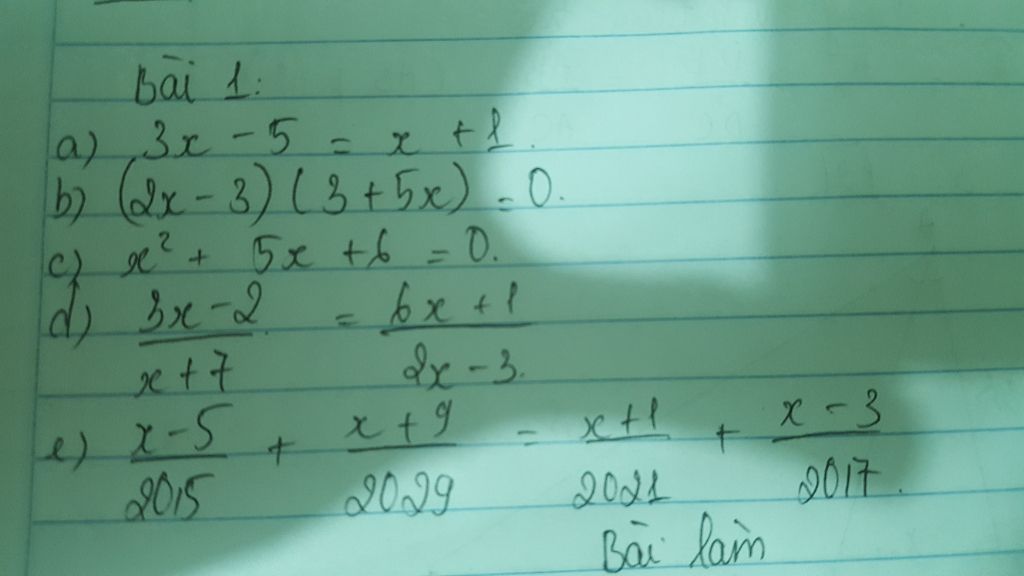 Bài 1:
a) 3x - 5 = x + 1.
b) (2x - 3)(3 + 5x) = 0.
c) x² + 5x + 6 = 0.
d) (3x - 2)/(x + 7) = (6x + 1)/(2x - 3).
e) (x - 5)/2015 + (x + 9)/2029 = (x + 1)/2021 + (x - 3)/2017.
Bài làm